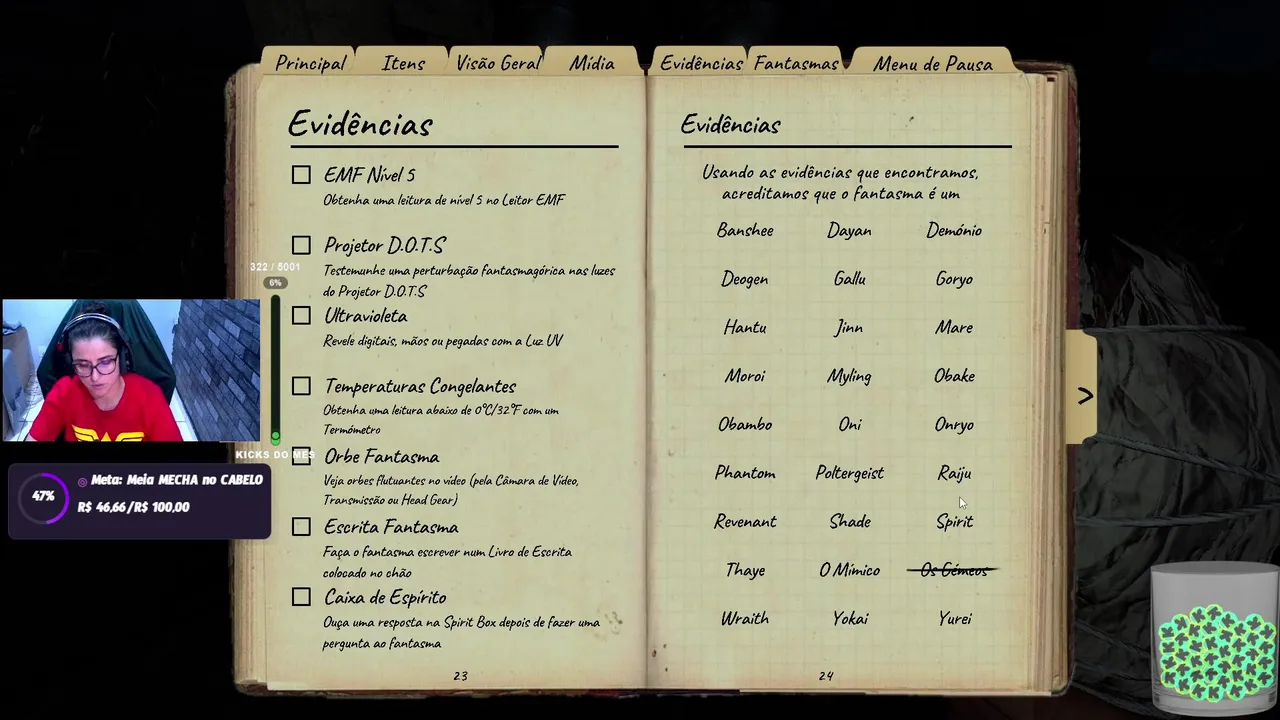 Principal
Itens
Visão Geral
Mídia
Evidências
Fantasmas
Menu de Pausa
Evidências
EMF Nível 5
Obtenha uma leitura de nível 5 no Leitor EMF
Projetor D.O.T.S
Testemunhe uma perturbação fantasmagórica nas luzes
do Projetor D.O.T.S
Ultravioleta
Revele digitais, mãos ou pegadas com a Luz UV
Temperaturas Congelantes
Obtenha uma leitura abaixo de 0°C/32°F com um
Termómetro
Orbe Fantasma
Veja orbes flutuantes no vídeo (pela Câmara de Vídeo,
Transmissão ou Head Gear)
Escrita Fantasma
Faça o fantasma escrever num Livro de Escrita
colocado no chão
Caixa de Espírito
Ouça uma resposta na Spirit Box depois de fazer uma
pergunta ao fantasma
23
Evidências
Usando as evidências que encontramos,
acreditamos que o fantasma é um
Banshee Dayan Demónio
Deogen Gallu Goryo
Hantu Jinn Mare
Moroi Myling Obake
Obambo Oni Onryo
Phantom Poltergeist Raiju
Revenant Shade Spirit
Thaye O Mímico Os Gémeos
Wraith Yokai Yurei
24
>
322 / 5001
6%
KICKS DO MES
47%
Meta: Meia MECHA no CABELO
R$ 46,66/R$ 100,00